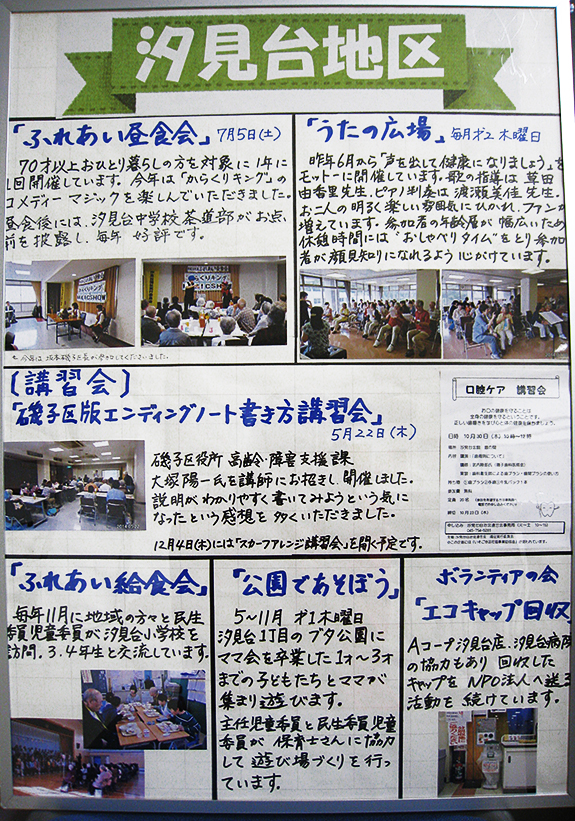 汐見台地区
「ふれあい昼食会」7月5日(土)
70才以上おひとり暮らしの方を対象に1年に
1回開催しています。今年は「からくりキング」の
コメディーマジックを楽しんでいただきました。
昼食後には、汐見台中学校茶道部がお点
前を披露し、毎年 好評です。
「うたの広場」毎月才2木曜日
昨年6月から「声を出して健康になりましょう」を
モットーに開催しています。歌の指導は 草田
由香里先生、ピアノ判奏は 渡瀬美佳先生。
お二人の明るく楽しい雰囲気にひかれ、ファンが
増えています。参加者の年齢層が幅広いため
休憩時間には"おしゃべりタイム"をとり参加
者が顔見知りになれるよう心がけています。
[講習会]
「磯子区版エンディングノート書き方講習会」
5月22日(木)
磯子区役所 高齢・障害支援課
大塚陽一氏を講師にお招きし、開催しました。
説明がわかりやすく書いてみようという気に
なったという感想を多くいただきました。
12月4日(木)には「スカーフアレンジ講習会」を開く予定です。
口腔ケア 講習会
お口の健康を守ることは
全身の健康を守るということです。
日時 10月30日(木)
「ふれあい給食会」
毎年11月に地域の方々と民生
委員児童委員が汐見台小学校を
訪問。3.4年生と交流しています。
「公園であそぼう」
5~11月 才1木曜日
汐見台1丁目のブタ公園に
ママ会を卒業した1才~3才
までの子どもたちとママが
集まり遊びます。
主任児童委員と民生委員児童
委員が 保育士さんに協力
して 遊び場づくりを行っ
ています。
ボランティアの会
「エコキャップ回収」
Aコープ汐見台店、汐見台病院
の協力もあり 回収した
キャップを NPO法人へ送る
活動を 続けています。